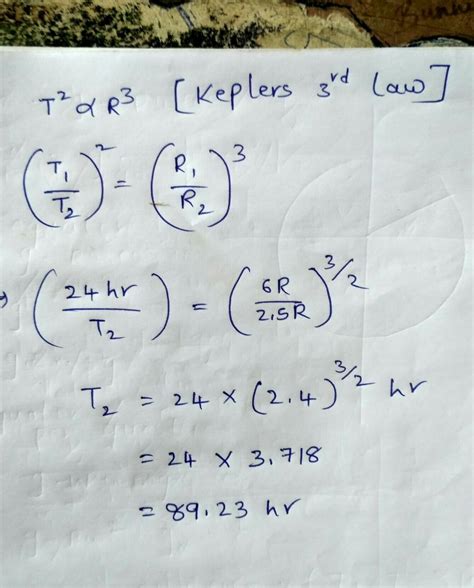 T² ∝ R³ [Keplers 3rd Law]
(T₁/T₂)² = (R₁/R₂)³
(24 hr/T₂) = (6R/2.5R)^3/2
T₂ = 24 × (2.4)^3/2 hr
= 24 × 3.718
= 89.23 hr